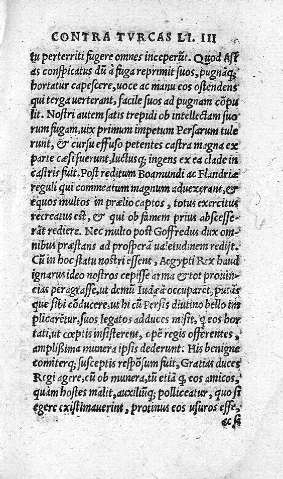 CONTRA TVRCAS LI. III
tu perterriti fugere omnes inceperũt. Quod Astas
conspicatus dũ à fuga reprimit suos, pugnãq;
hortatur capescere, uoce ac manu eos ostendens
qui terga uerterant, facile suos ad pugnam cõpu
lit. Nostri autem satis trepidi ob intellectam suo
rum fugam, uix primum impetum Persarum tule
runt, & cursu effuso petentes castra magna ex
parte cæsi fuerunt, luctusq; ingens ex ea clade in
castris fuit. Post reditum Boamundi ac Flandriæ
reguli qui commeatum magnum aduexerant, &
equos multos in prælio captos, totus exercitus
recreatus est, & qui ob famem prius abscesse-
rãt rediere. Nec multo post Goffredus dux om-
nibus præstans ad prosperã ualeiudinem redijt.
Cũ in hoc statu nostri essent, Aegypti Rex haud
ignarus ideo nostros cepisse arma & tot prouin-
cias peragrasse, ut demũ Iudæã occuparẽt, putãs
que sibi cõducere, ut hi cũ Persis diutino bello im
plicarẽtur, suos legatos ad duces misit, q eos hor
tati, ut cœptis insisterent, opẽ regis offerentes,
amplissima munera ipsis dederunt. His benigne
comiterq; susceptis respõsum fuit, Gratias duces
Regi agere, cũ ob munera, tũ etiã q eos amicos,
quàm hostes malit, auxiliũq; polliceatur, quo si
egere existimauerint, protinus eos usuros esse,
ac si